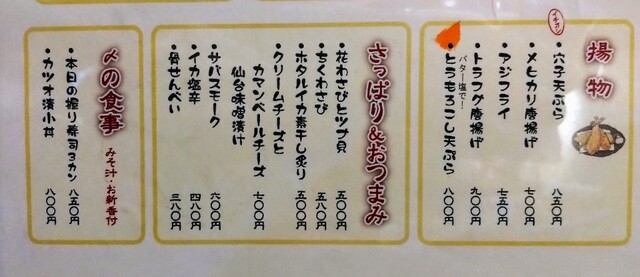 揚物
イチオシ
・穴子天ぷら 八五〇円
・メヒカリ唐揚げ
・アジフライ 七五〇円
・トラフグ唐揚げ 九〇〇円
バター塩で!
・とうもろこし天ぷら 八〇〇円
さっぱり&おつまみ
・花わさびとツブ貝 五〇〇円
・ちくわさび 五八〇円
・ホタルイカ素干し炙り 五〇〇円
・クリームチーズと
カマンベールチーズ
仙台味噌漬け 七〇〇円
・サバスモーク 六〇〇円
・イカ塩辛 四八〇円
・骨せんべい 三八〇円
〆の食事
みそ汁・お新香付
・本日の握り寿司3カン 八五〇円
・カツオ漬小丼 八〇〇円